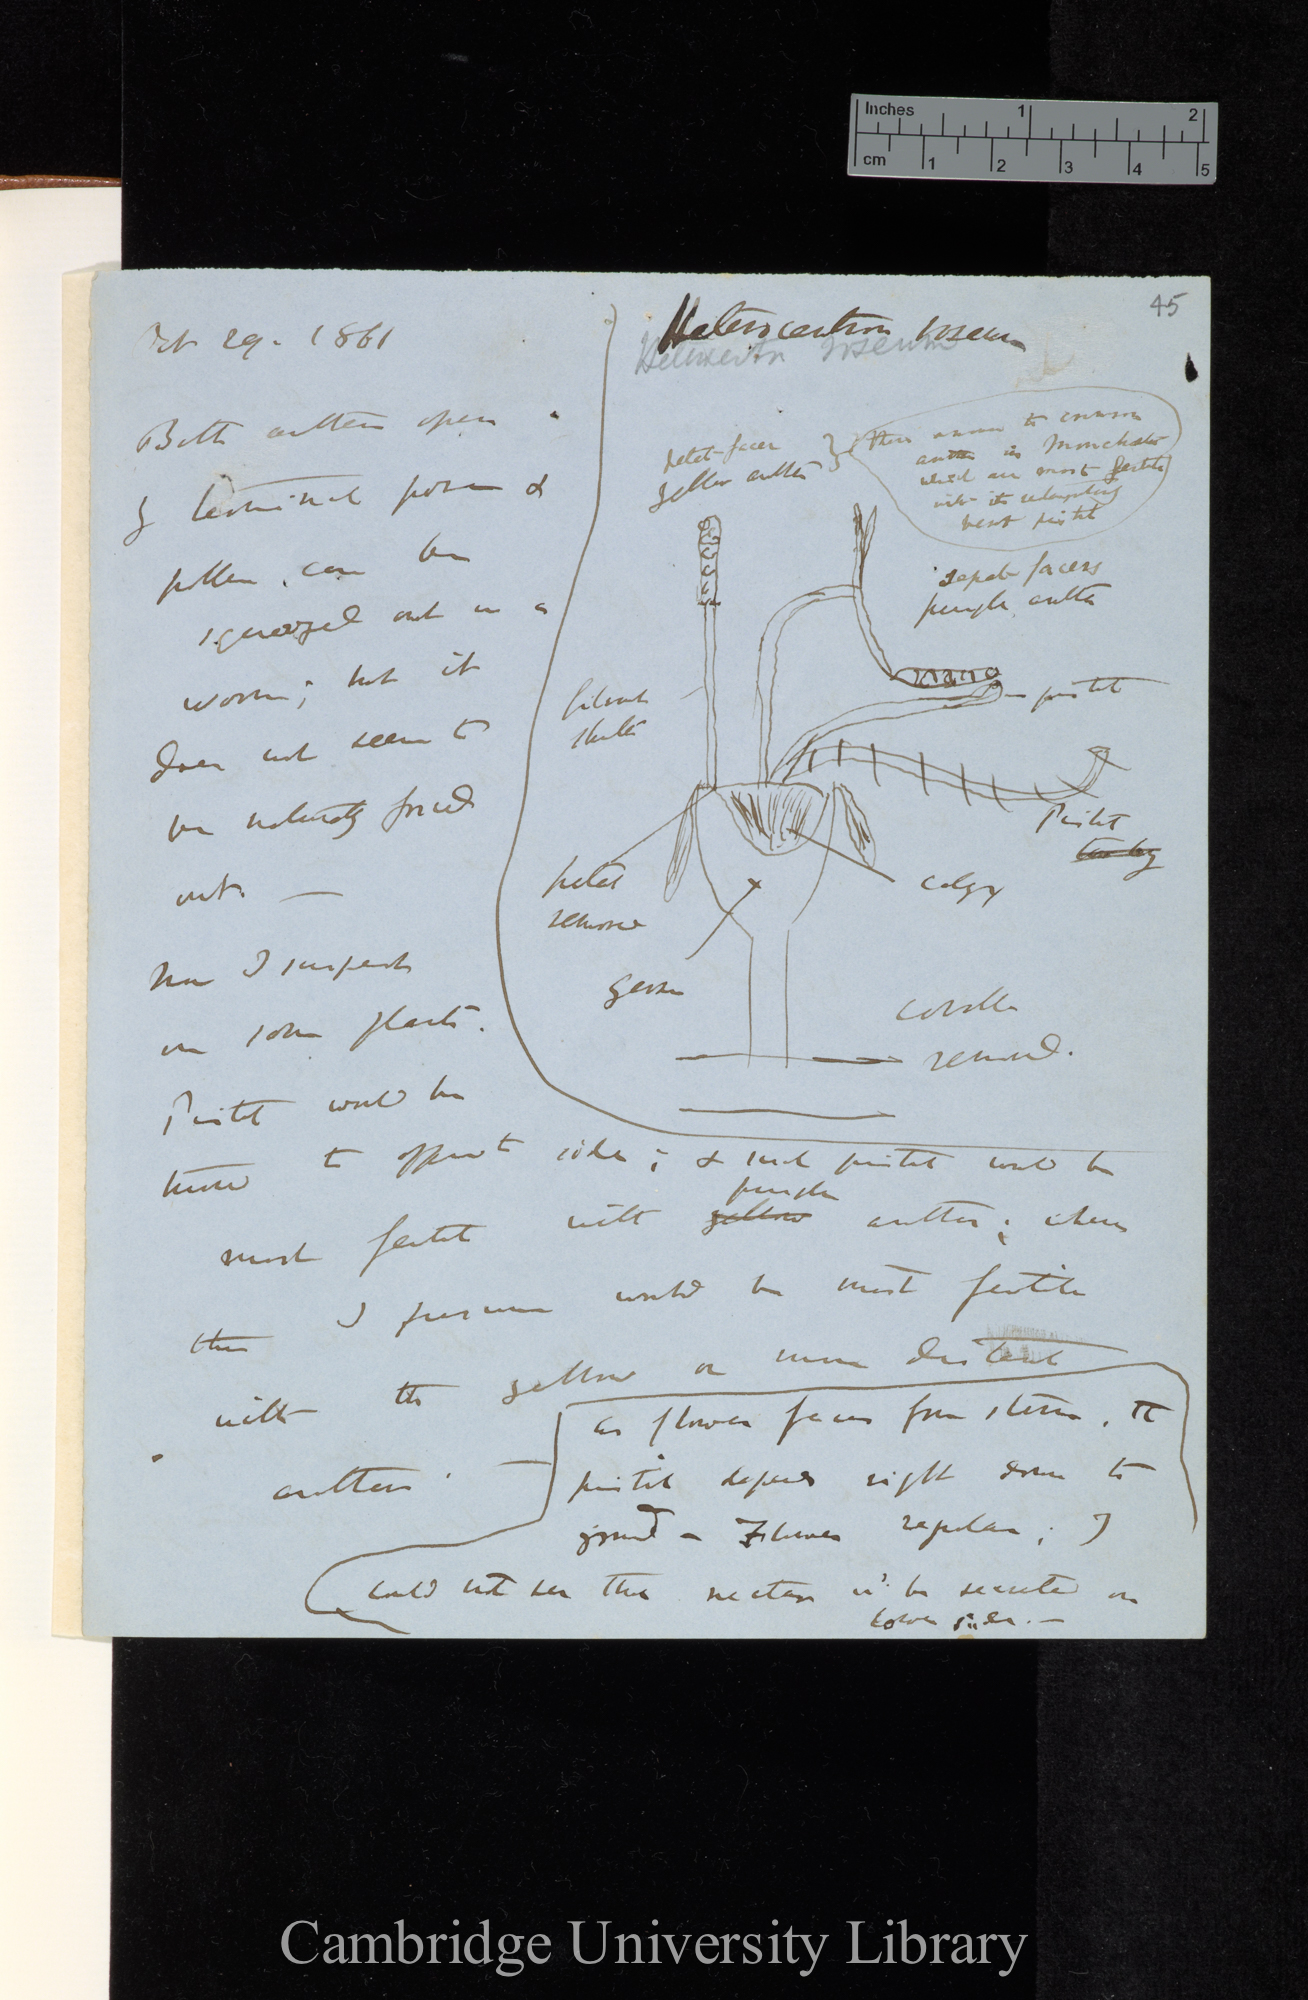 Inches 1 2
cm 1 2 3 4 5
45
Oct 29. 1861
Heterocentron roseum
Heterocentron roseum
Both anthers open
by terminal pores &
pollen can be
squeezed out in a
worm; but it
does not seem to
be naturally forced
out. —
Now I suspect
in some plants.
Pistil would be
turned to opposite side; & such pistil would be
most fertile with purple yellow anthers; whereas
this I presume would be most fertile
with the yellow or more distant
anthers. —
petal-facer
yellow anther
These answer to common
anther in Monochaetum
which are most fertile
with its
bent pistil
sepal facers
purple anther
pistil
filament
Pistil
petal
removed
calyx
germen
corolla
removed.
as flower faces from stem, the
pistil depends right down to
ground — Flower regular; I
could not see that nectar is be secreted on
lower side. —
Cambridge University Library